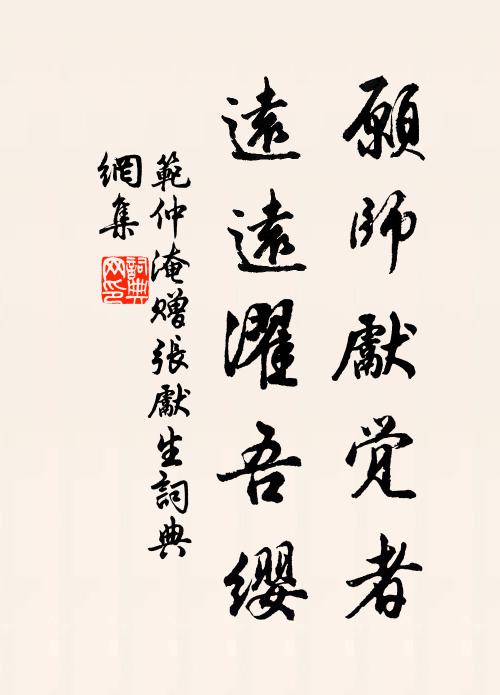 願師獻觉者
遠遠濯吾缨
範仲淹赠張獻生詞典
網集
詞典
网印